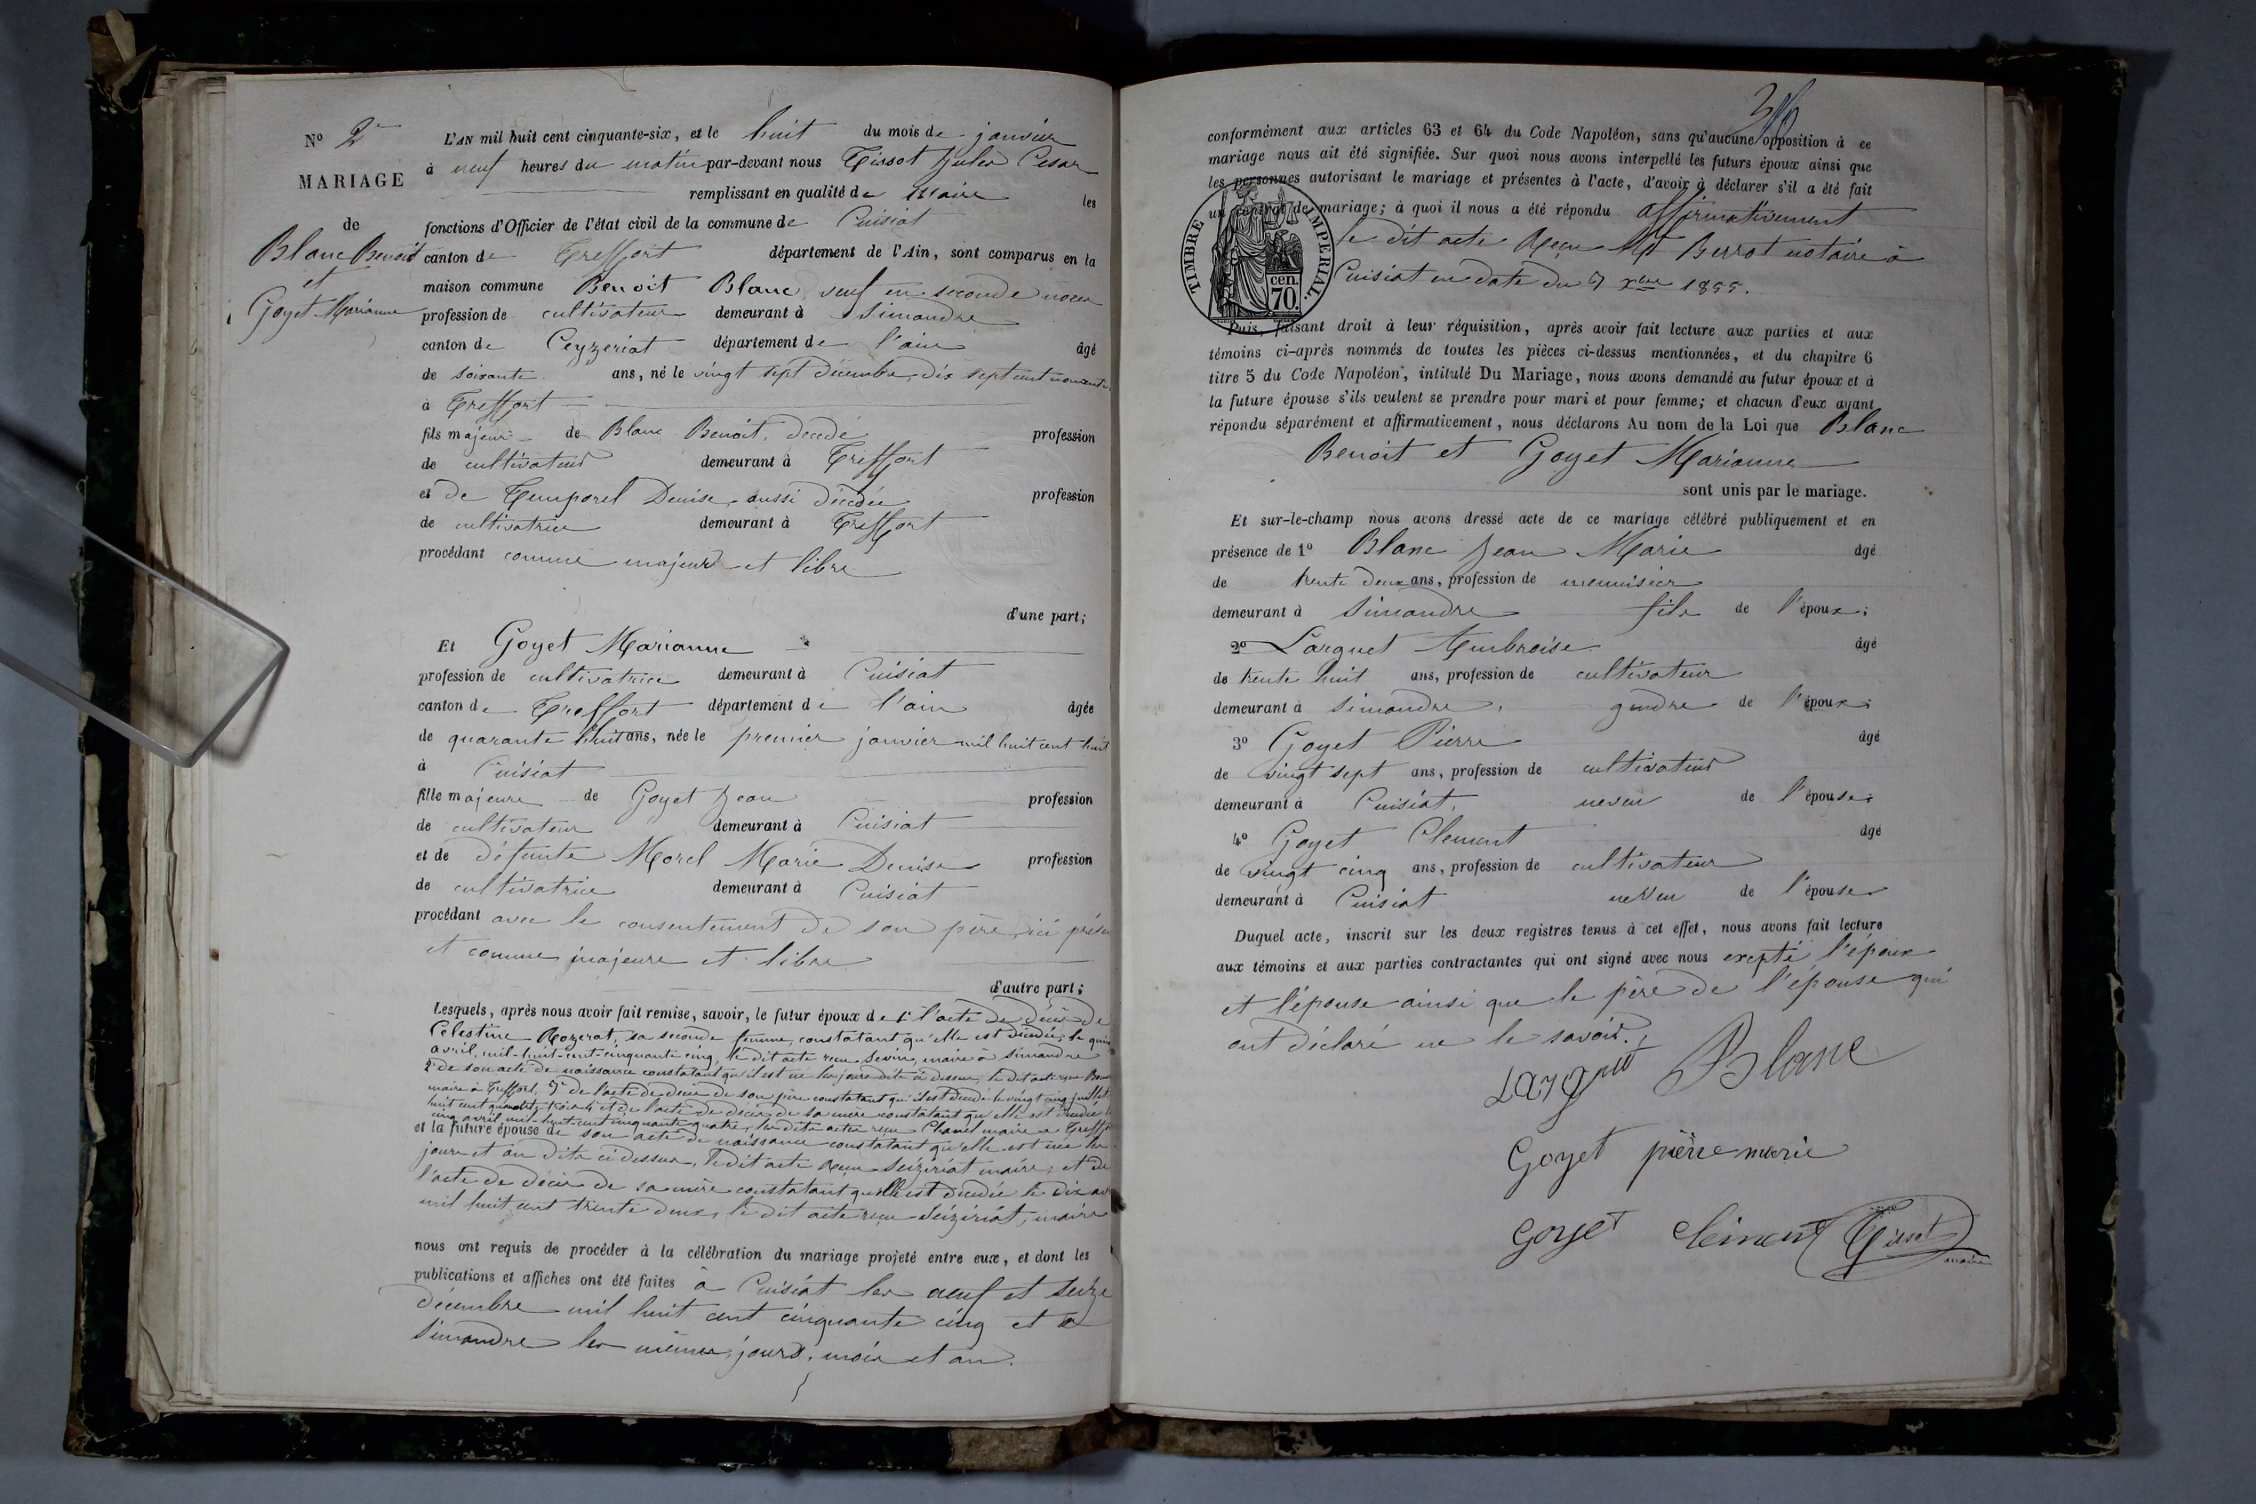 N° 2
MARIAGE
de
Blanc Benoit
et
Goyet Marianne
L'AN mil huit cent cinquante-six, et le huit du mois de janvier
à neuf heures du matin par-devant nous Tissot Jules Cesar
remplissant en qualité de maire les
fonctions d'Officier de l'état civil de la commune de Cuisiat
canton de Treffort département de l'Ain, sont comparus en la
maison commune Benoit Blanc veuf en seconde noces
profession de cultivateur demeurant à Simandre
canton de Ceyzeriat département de l'ain âgé
de soixante ans, né le vingt sept décembre dix sept cent
à Treffort
fils majeur de Blanc Benoit, décédé profession
de cultivateur demeurant à Treffort
et de Temporel Denise aussi décédée profession
de cultivatrice demeurant à Treffort
procédant comme majeur et libre
d'une part;
Et Goyet Marianne
profession de cultivatrice demeurant à Cuisiat
canton de Treffort département de l'ain âgée
de quarante huit ans, née le premier janvier mil huit cent huit
à Cuisiat
fille majeure de Goyet Jean profession
de cultivateur demeurant à Cuisiat
et de défunte Morel Marie Denise profession
de cultivatrice demeurant à Cuisiat
procédant avec le consentement de son père ici
et comme majeure et libre
d'autre part;
Lesquels, après nous avoir fait remise, savoir, le futur époux de 1° l'acte de décès de
Celestine Rozerat, sa seconde femme, constatant qu'elle est décédée le
avril mil-huit-cent-cinquante cinq, le dit acte reçu Sevin, maire à Simandre
2° de son acte de naissance constatant qu'il est né les jours dits ci dessus, le dit acte reçu
maire à Treffort, 3° de l'acte de décès de son père constatant qu'il est décédé le vingt cinq juillet
huit cent et de l'acte de décès de sa mère constatant qu'elle est décédée le
cinq avril mil-huit-cent cinquante quatre, les dits actes reçu Chanel maire à
et la future épouse de son acte de naissance constatant qu'elle est née les
jours et an dits ci dessus, le dit acte reçu Seizériat maire, et de
l'acte de décès de sa mère constatant qu'elle est décédée le dix
mil huit cent trente deux, le dit acte reçu Seizériat, maire
nous ont requis de procéder à la célébration du mariage projeté entre eux, et dont les
publications et affiches ont été faites à Cuisiat les neuf et seize
décembre mil huit cent cinquante cinq et à
Simandre les mêmes jours, mois et an.
conformément aux articles 63 et 64 du Code Napoléon, sans qu'aucune opposition à ce
mariage nous ait été signifiée. Sur quoi nous avons interpellé les futurs époux ainsi que
les personnes autorisant le mariage et présentes à l'acte, d'avoir à déclarer s'il a été fait
un contrat de mariage; à quoi il nous a été répondu affirmativement
le dit acte reçu Mr Perrot notaire à
Cuisiat en date du 7 xbre 1855.
TIMBRE IMPERIAL.
70 cen.
Puis, faisant droit à leur réquisition, après avoir fait lecture aux parties et aux
témoins ci-après nommés de toutes les pièces ci-dessus mentionnées, et du chapitre 6
titre 5 du Code Napoléon, intitulé Du Mariage, nous avons demandé au futur époux et à
la future épouse s'ils veulent se prendre pour mari et pour femme; et chacun d'eux ayant
répondu séparément et affirmativement, nous déclarons Au nom de la Loi que Blanc
Benoit et Goyet Marianne
sont unis par le mariage.
Et sur-le-champ nous avons dressé acte de ce mariage célébré publiquement et en
présence de 1° Blanc Jean Marie âgé
de trente deux ans, profession de menuisier
demeurant à Simandre fils de l'époux;
2° Larguet Ambroise âgé
de trente huit ans, profession de cultivateur
demeurant à Simandre, gendre de l'époux;
3° Goyet Pierre âgé
de vingt sept ans, profession de cultivateur
demeurant à Cuisiat, neveu de l'épouse;
4° Goyet Clement âgé
de vingt cinq ans, profession de cultivateur
demeurant à Cuisiat neveu de l'épouse
Duquel acte, inscrit sur les deux registres tenus à cet effet, nous avons fait lecture
aux témoins et aux parties contractantes qui ont signé avec nous excepté l'époux
et l'épouse ainsi que le père de l'épouse qui
ont déclaré ne le savoir.
Larguet Blanc
Goyet pierre marie
Goyet Clément Tissot
maire